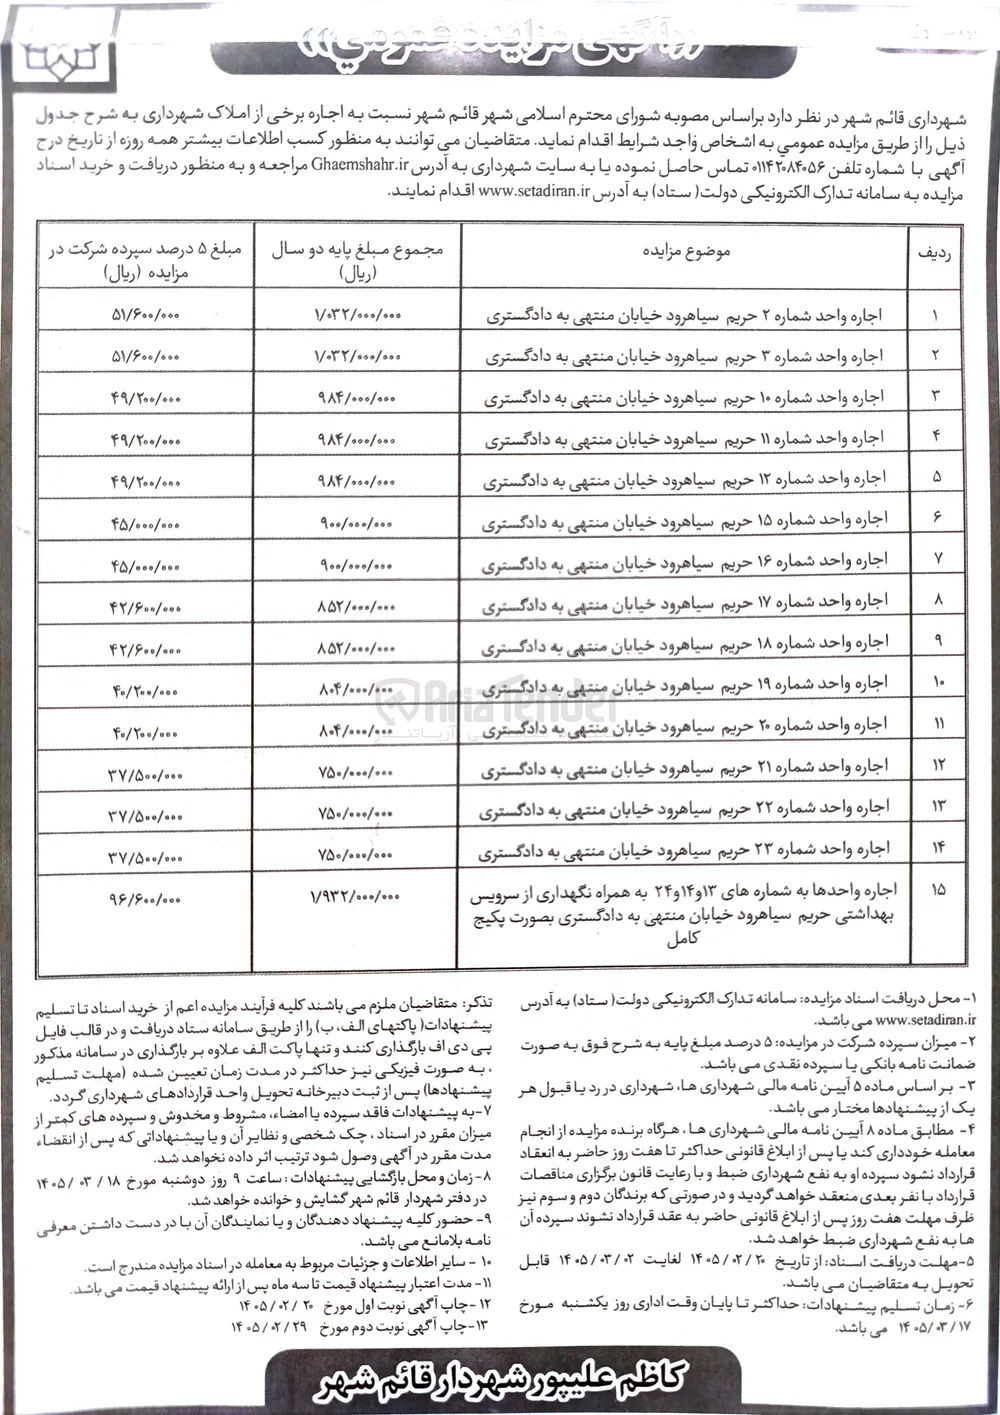 ((آگهی مزایده عمومي))
شهرداری قائم شهر در نظر دارد براساس مصوبه شورای محترم اسلامی شهر قائم شهر نسبت به اجاره برخی از املاک شهرداری به شرح جدول
ذیل را از طریق مزایده عمومي به اشخاص واجد شرایط اقدام نماید. متقاضیان مي توانند به منظور کسب اطلاعات بیشتر همه روزه از تاریخ درج
آگهی با شماره تلفن ۰۱۱۴۲۰۸۴۰۵۶ تماس حاصل نموده یا به سایت شهرداری به آدرس Ghaemshahr.ir مراجعه و به منظور دریافت و خرید اسناد
مزایده به سامانه تدارک الکترونیکی دولت( ستاد) به آدرس www.setadiran.ir اقدام نمایند.
ردیف موضوع مزایده مجموع مبلغ پایه دو سال (ریال) مبلغ ۵ درصد سپرده شرکت در مزایده (ریال)
۱ اجاره واحد شماره ۲ حریم سیاهرود خیابان منتهی به دادگستری ۱/۰۳۲/۰۰۰/۰۰۰ ۵۱/۶۰۰/۰۰۰
۲ اجاره واحد شماره ۳ حریم سیاهرود خیابان منتهی به دادگستری ۱/۰۳۲/۰۰۰/۰۰۰ ۵۱/۶۰۰/۰۰۰
۳ اجاره واحد شماره ۱۰ حریم سیاهرود خیابان منتهی به دادگستری ۹۸۴/۰۰۰/۰۰۰ ۴۹/۲۰۰/۰۰۰
۴ اجاره واحد شماره ۱۱ حریم سیاهرود خیابان منتهی به دادگستری ۹۸۴/۰۰۰/۰۰۰ ۴۹/۲۰۰/۰۰۰
۵ اجاره واحد شماره ۱۲ حریم سیاهرود خیابان منتهی به دادگستری ۹۸۴/۰۰۰/۰۰۰ ۴۹/۲۰۰/۰۰۰
۶ اجاره واحد شماره ۱۵ حریم سیاهرود خیابان منتهی به دادگستری ۹۰۰/۰۰۰/۰۰۰ ۴۵/۰۰۰/۰۰۰
۷ اجاره واحد شماره ۱۶ حریم سیاهرود خیابان منتهی به دادگستری ۹۰۰/۰۰۰/۰۰۰ ۴۵/۰۰۰/۰۰۰
۸ اجاره واحد شماره ۱۷ حریم سیاهرود خیابان منتهی به دادگستری ۸۵۲/۰۰۰/۰۰۰ ۴۲/۶۰۰/۰۰۰
۹ اجاره واحد شماره ۱۸ حریم سیاهرود خیابان منتهی به دادگستری ۸۵۲/۰۰۰/۰۰۰ ۴۲/۶۰۰/۰۰۰
۱۰ اجاره واحد شماره ۱۹ حریم سیاهرود خیابان منتهی به دادگستری ۸۰۴/۰۰۰/۰۰۰ ۴۰/۲۰۰/۰۰۰
۱۱ اجاره واحد شماره ۲۰ حریم سیاهرود خیابان منتهی به دادگستری ۸۰۴/۰۰۰/۰۰۰ ۴۰/۲۰۰/۰۰۰
۱۲ اجاره واحد شماره ۲۱ حریم سیاهرود خیابان منتهی به دادگستری ۷۵۰/۰۰۰/۰۰۰ ۳۷/۵۰۰/۰۰۰
۱۳ اجاره واحد شماره ۲۲ حریم سیاهرود خیابان منتهی به دادگستری ۷۵۰/۰۰۰/۰۰۰ ۳۷/۵۰۰/۰۰۰
۱۴ اجاره واحد شماره ۲۳ حریم سیاهرود خیابان منتهی به دادگستری ۷۵۰/۰۰۰/۰۰۰ ۳۷/۵۰۰/۰۰۰
۱۵ اجاره واحدها به شماره های ۱۳و۱۴و۲۴ به همراه نگهداری از سرویس ۱/۹۳۲/۰۰۰/۰۰۰ ۹۶/۶۰۰/۰۰۰
بهداشتی حریم سیاهرود خیابان منتهی به دادگستری بصورت پکیج
کامل
AriaTender
۱- محل دریافت اسناد مزایده: سامانه تدارک الکترونیکی دولت( ستاد) به آدرس
www.setadiran.ir می باشد.
۲- میزان سپرده شرکت در مزایده: ۵ درصد مبلغ پایه به شرح فوق به صورت
ضمانت نامه بانکی یا سپرده نقدی می باشد.
۳- بر اساس ماده ۵ آیین نامه مالی شهرداری ها، شهرداری در رد یا قبول هر
یک از پیشنهادها مختار می باشد.
۴- مطابق ماده ۸ آیین نامه مالی شهرداری ها ، هرگاه برنده مزایده از انجام
معامله خودداری کند یا پس از ابلاغ قانونی حداکثر تا هفت روز حاضر به انعقاد
قرارداد نشود سپرده او به نفع شهرداری ضبط و با رعایت قانون برگزاری مناقصات
قرارداد با نفر بعدی منعقد خواهد گردید و در صورتی که برندگان دوم و سوم نیز
ظرف مهلت هفت روز پس از ابلاغ قانونی حاضر به عقد قرارداد نشوند سپرده آن
ها به نفع شهرداری ضبط خواهد شد.
۵-مهلت دریافت اسناد: از تاریخ ۲۰ /۰۲ /۱۴۰۵ لغایت ۰۲ /۰۳ /۱۴۰۵ قابل
تحویل به متقاضیان می باشد.
۶- زمان تسلیم پیشنهادات: حداکثر تا پایان وقت اداری روز یکشنبه مورخ
۱۷ /۰۳ /۱۴۰۵ می باشد.
تذکر: متقاضیان ملزم می باشند کلیه فرآیند مزایده اعم از خرید اسناد تا تسلیم
پیشنهادات( پاکتهای الف، ب) را از طریق سامانه ستاد دریافت و در قالب فایل
پی دی اف بارگذاری کنند و تنها پاکت الف علاوه بر بارگذاری در سامانه مذکور
، به صورت فیزیکی نیز حداکثر در مدت زمان تعیین شده (مهلت تسلیم
پیشنهادها) پس از ثبت دبیرخانه تحویل واحد قراردادهای شهرداری گردد.
۷-به پیشنهادات فاقد سپرده یا امضاء، مشروط و مخدوش و سپرده های کمتر از
میزان مقرر در اسناد ، چک شخصی و نظایر آن و یا پیشنهاداتی که پس از انقضاء
مدت مقرر در آگهی وصول شود ترتیب اثر داده نخواهد شد.
۸-زمان و محل بازگشایی پیشنهادات : ساعت ۹ روز دوشنبه مورخ ۱۸ /۰۳ /۱۴۰۵
در دفتر شهردار قائم شهر گشایش و خوانده خواهد شد.
۹- حضور کلیه پیشنهاد دهندگان و یا نمایندگان آن با در دست داشتن معرفی
نامه بلامانع می باشد.
۱۰ - سایر اطلاعات و جزئیات مربوط به معامله در اسناد مزایده مندرج است.
۱۱- مدت اعتبار پیشنهاد قیمت تا سه ماه پس از ارائه پیشنهاد قیمت می باشد.
۱۲-چاپ آگهی نوبت اول مورخ ۲۰ /۰۲ /۱۴۰۵
۱۳-چاپ آگهی نوبت دوم مورخ ۲۹ /۰۲ /۱۴۰۵
کاظم علیپور شهردار قائم شهر